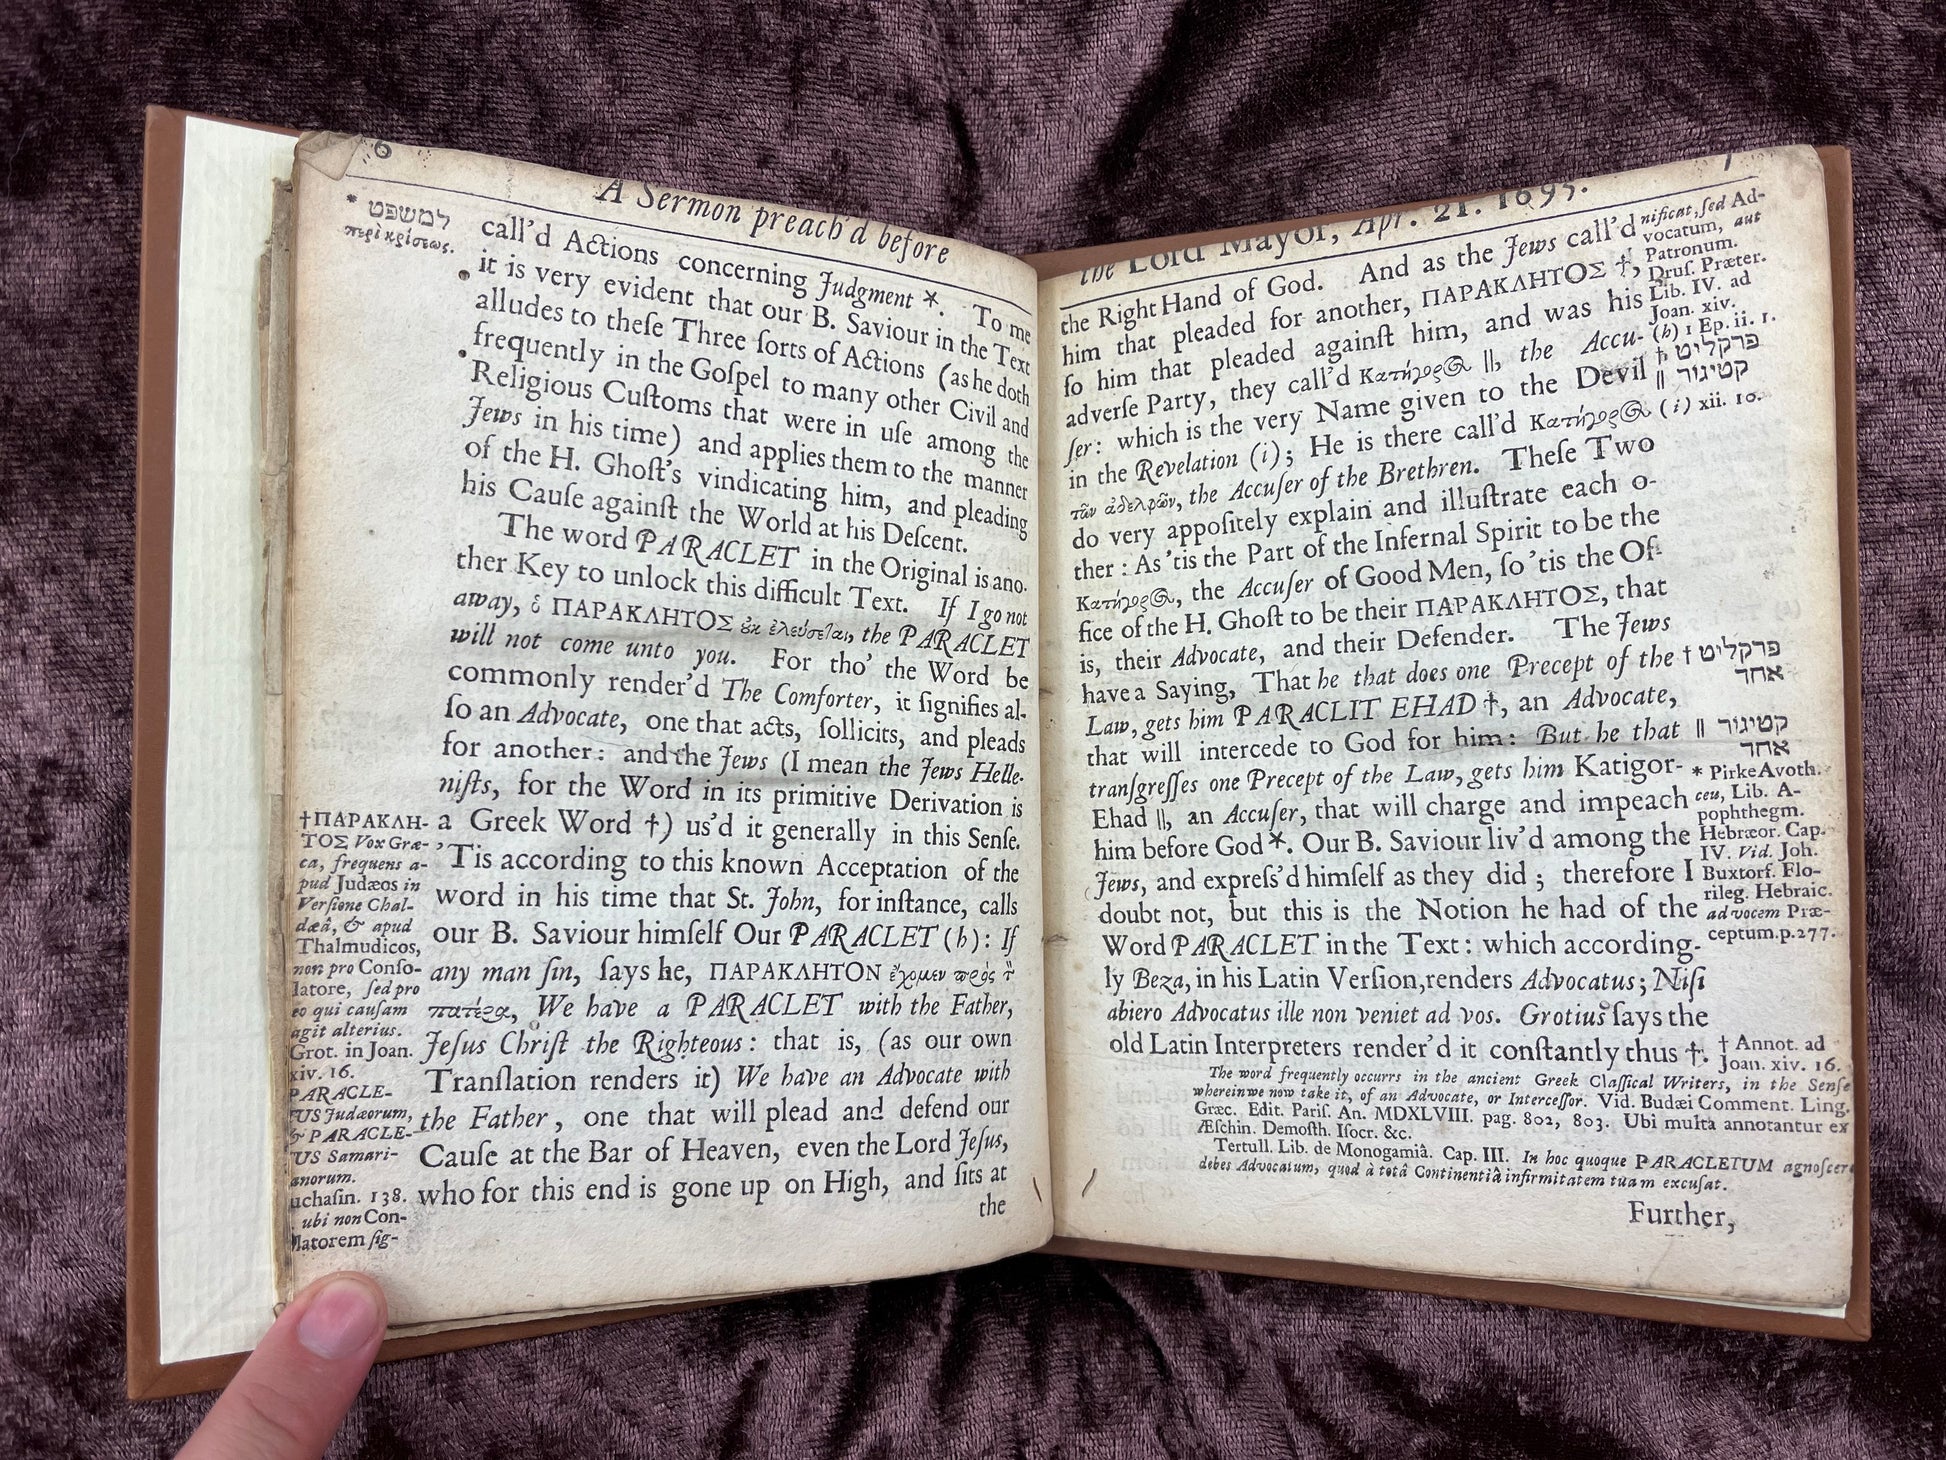 6
A Sermon preach'd before
* למשפט
περὶ κρίσεως.
call'd Actions concerning Judgment *. To me
it is very evident that our B. Saviour in the Text
alludes to theſe Three ſorts of Actions (as he doth
frequently in the Goſpel to many other Civil and
Religious Cuſtoms that were in uſe among the
Jews in his time) and applies them to the manner
of the H. Ghoſt's vindicating him, and pleading
his Cauſe against the World at his Deſcent.
The word PARACLET in the Original is ano-
ther Key to unlock this difficult Text. If I go not
away, ὁ ΠΑΡΑΚΛΗΤΟΣ ȣκ ἐλεύσεται, the PARACLET
will not come unto you. For tho' the Word be
commonly render'd The Comforter, it ſignifies al-
ſo an Advocate, one that acts, ſollicits, and pleads
for another: and the Jews (I mean the Jews Helle-
niſts, for the Word in its primitive Derivation is
a Greek Word †) us'd it generally in this Senſe.
'Tis according to this known Acceptation of the
word in his time that St. John, for inſtance, calls
our B. Saviour himſelf Our PARACLET (h): If
any man ſin, ſays he, ΠΑΡΑΚΛΗΤΟΝ ἔχομεν πρὸς τ
πατέρα, We have a PARACLET with the Father,
Jeſus Chriſt the Righteous: that is, (as our own
Tranſlation renders it) We have an Advocate with
the Father, one that will plead and defend our
Cauſe at the Bar of Heaven, even the Lord Jeſus,
who for this end is gone up on High, and ſits at
the
†ΠΑΡΑΚΛΗ-
ΤΟΣ Vox Græ-
ca, frequens a-
pud Judæos in
Verſione Chal-
dæâ, & apud
Thalmudicos,
non pro Conſo-
latore, ſed pro
eo qui cauſam
agit alterius.
Grot. in Joan.
xiv. 16.
PARACLE-
TUS Judæorum,
& PARACLE-
TUS Samari-
anorum.
uchaſin. 138.
ubi non Con-
ſolatorem ſig-
the Lord Mayor, Apr. 21. 1695.
7
the Right Hand of God. And as the Jews call'd
him that pleaded for another, ΠΑΡΑΚΛΗΤΟΣ †,
ſo him that pleaded againſt him, and was his
adverſe Party, they call'd Κατήγορος ||, the Accu-
ſer: which is the very Name given to the Devil
in the Revelation (i); He is there call'd Κατήγορος
τῶν ἀδελφῶν, the Accuſer of the Brethren. Theſe Two
do very appoſitely explain and illuſtrate each o-
ther: As 'tis the Part of the Infernal Spirit to be the
Κατήγορος, the Accuſer of Good Men, ſo 'tis the Of-
fice of the H. Ghoſt to be their ΠΑΡΑΚΛΗΤΟΣ, that
is, their Advocate, and their Defender. The Jews
have a Saying, That he that does one Precept of the
Law, gets him PARACLIT EHAD †, an Advocate,
that will intercede to God for him: But he that
tranſgreſſes one Precept of the Law, gets him Katigor-
Ehad ||, an Accuſer, that will charge and impeach
him before God *. Our B. Saviour liv'd among the
Jews, and expreſs'd himſelf as they did; therefore I
doubt not, but this is the Notion he had of the
Word PARACLET in the Text: which according-
ly Beza, in his Latin Verſion, renders Advocatus; Niſi
abiero Advocatus ille non veniet ad vos. Grotius ſays the
old Latin Interpreters render'd it conſtantly thus †.
nificat, ſed Ad-
vocatum, aut
Patronum.
Druſ. Præter.
Lib. IV. ad
Joan. xiv.
(h) 1 Ep. ii. 1.
† פרקליט
|| קטיגור
(i) xii. 10.
† פרקליט
אחד
|| קטיגור
אחד
* Pirke Avoth.
ceu, Lib. A-
pophthegm.
Hebræor. Cap.
IV. Vid. Joh.
Buxtorf. Flo-
rileg. Hebraic.
ad vocem Præ-
ceptum. p. 277.
† Annot. ad
Joan. xiv. 16.
The word frequently occurrs in the ancient Greek Claſſical Writers, in the Senſe
wherein we now take it, of an Advocate, or Interceſſor. Vid. Budæi Comment. Ling.
Græc. Edit. Pariſ. An. MDXLVIII. pag. 802, 803. Ubi multa annotantur ex
Æſchin. Demoſth. Iſocr. &c.
Tertull. Lib. de Monogamiâ. Cap. III. In hoc quoque PARACLETUM agnoſcere
debes Advocatum, quod à totâ Continentiâ infirmitatem tuam excuſat.
Further,